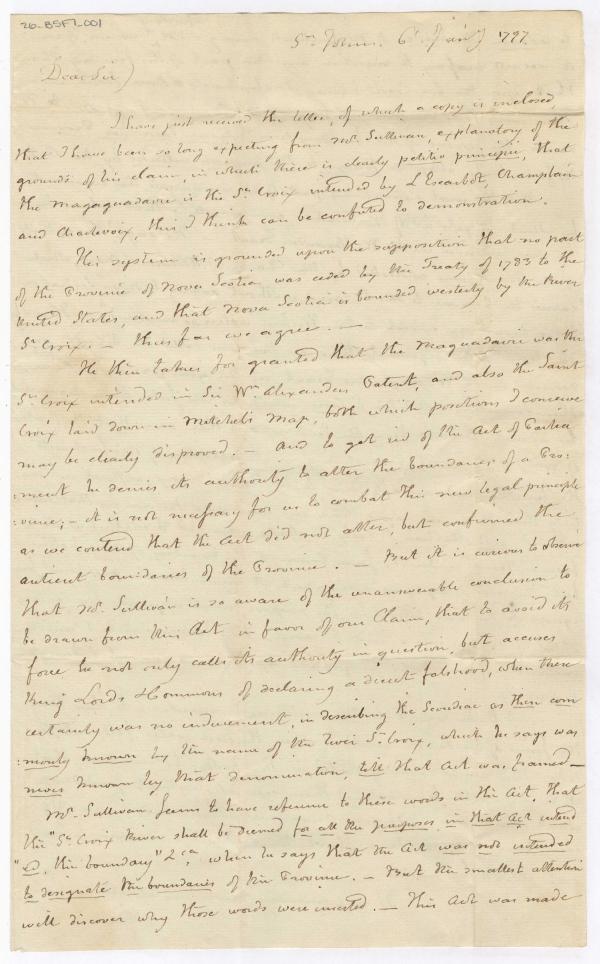 26-BSF1-001
St. Johns. 6th Jany 1797.
Dear Sir,
I have just received the letter, of which a copy is enclosed,
that I have been so long expecting from Mr. Sullivan, explanatory of the
grounds of his claim, in which there is clearly petitio principii, that
the Magaguadavic is the St. Croix intended by L'Escarbot, Champlain
and Charlevoix, this I think can be confuted to demonstration.
His system is grounded upon the supposition that no part
of the Province of Nova Scotia was ceded by the Treaty of 1783 to the
United States, and that Nova Scotia is bounded westerly by the River
St. Croix; — thus far we agree. —
He then takes for granted that the Maguadavic was the
St. Croix intended in Sir Wm. Alexanders Patent, and also the Saint
Croix laid down in Mitchels Map, both which positions I conceive
may be clearly disproved. — And to get rid of the Act of Parlia
:ment he denies its authority to alter the boundaries of a Pro:
:vince; — it is not necessary for us to combat this new legal principle
as we contend that the Act did not alter, but confirmed the
antient boundaries of the Province. — But it is curious to observe
that Mr. Sullivan is so aware of the unanswerable conclusion to
be drawn from this Act in favor of our Claim, that to avoid its
force he not only calls its authority in question, but accuses
King Lords & Commons of declaring a direct falshood, when there
certainly was no inducement, in describing the Scoudiac as then com
:monly known by the name of the river St. Croix, which he says was
never known by that denomination, till that Act was framed—
Mr. Sullivan seems to have reference to these words in the Act, that
the "St. Croix River shall be deemed for all the purposes in that Act intend
"ed, the boundary" &ca. when he says that the Act was not intended
to designate the boundaries of the Province. — But the smallest attention
will discover why those words were inserted. — This Act was made